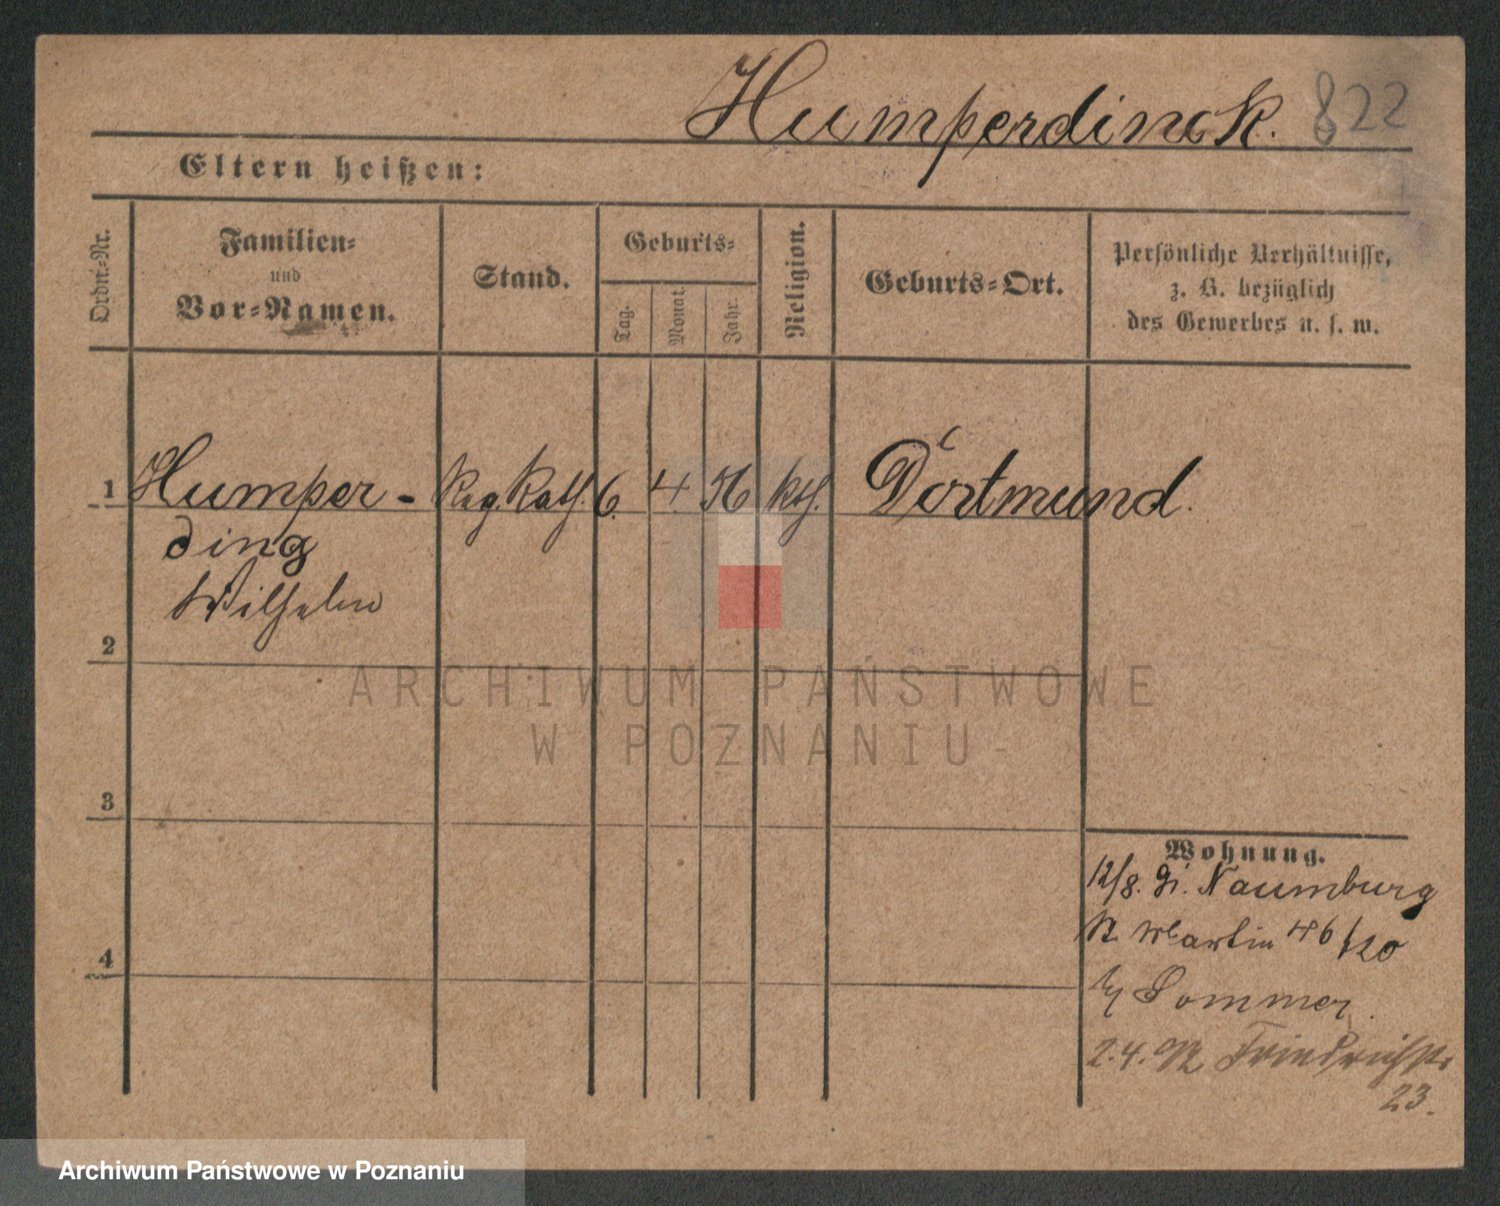 Humperdinck. 822
Eltern heißen:
Ordn.-Nr.
Familien-
und
Vor-Namen.
Stand.
Geburts-
Tag.
Monat.
Jahr.
Religion.
Geburts-Ort.
Persönliche Verhältnisse,
z. B. bezüglich
des Gewerbes u. s. w.
1 Humper- Reg. Rath. 6. 4. 56 kth. Dortmund.
ding
Wilhelm
2
3
4
Wohnung.
12/8. Naumburg
St. Martin 46/20
Sommer.
2.4. 92 Friedrichstr
23.
ARCHIWUM PAŃSTWOWE
W POZNANIU
Archiwum Państwowe w Poznaniu